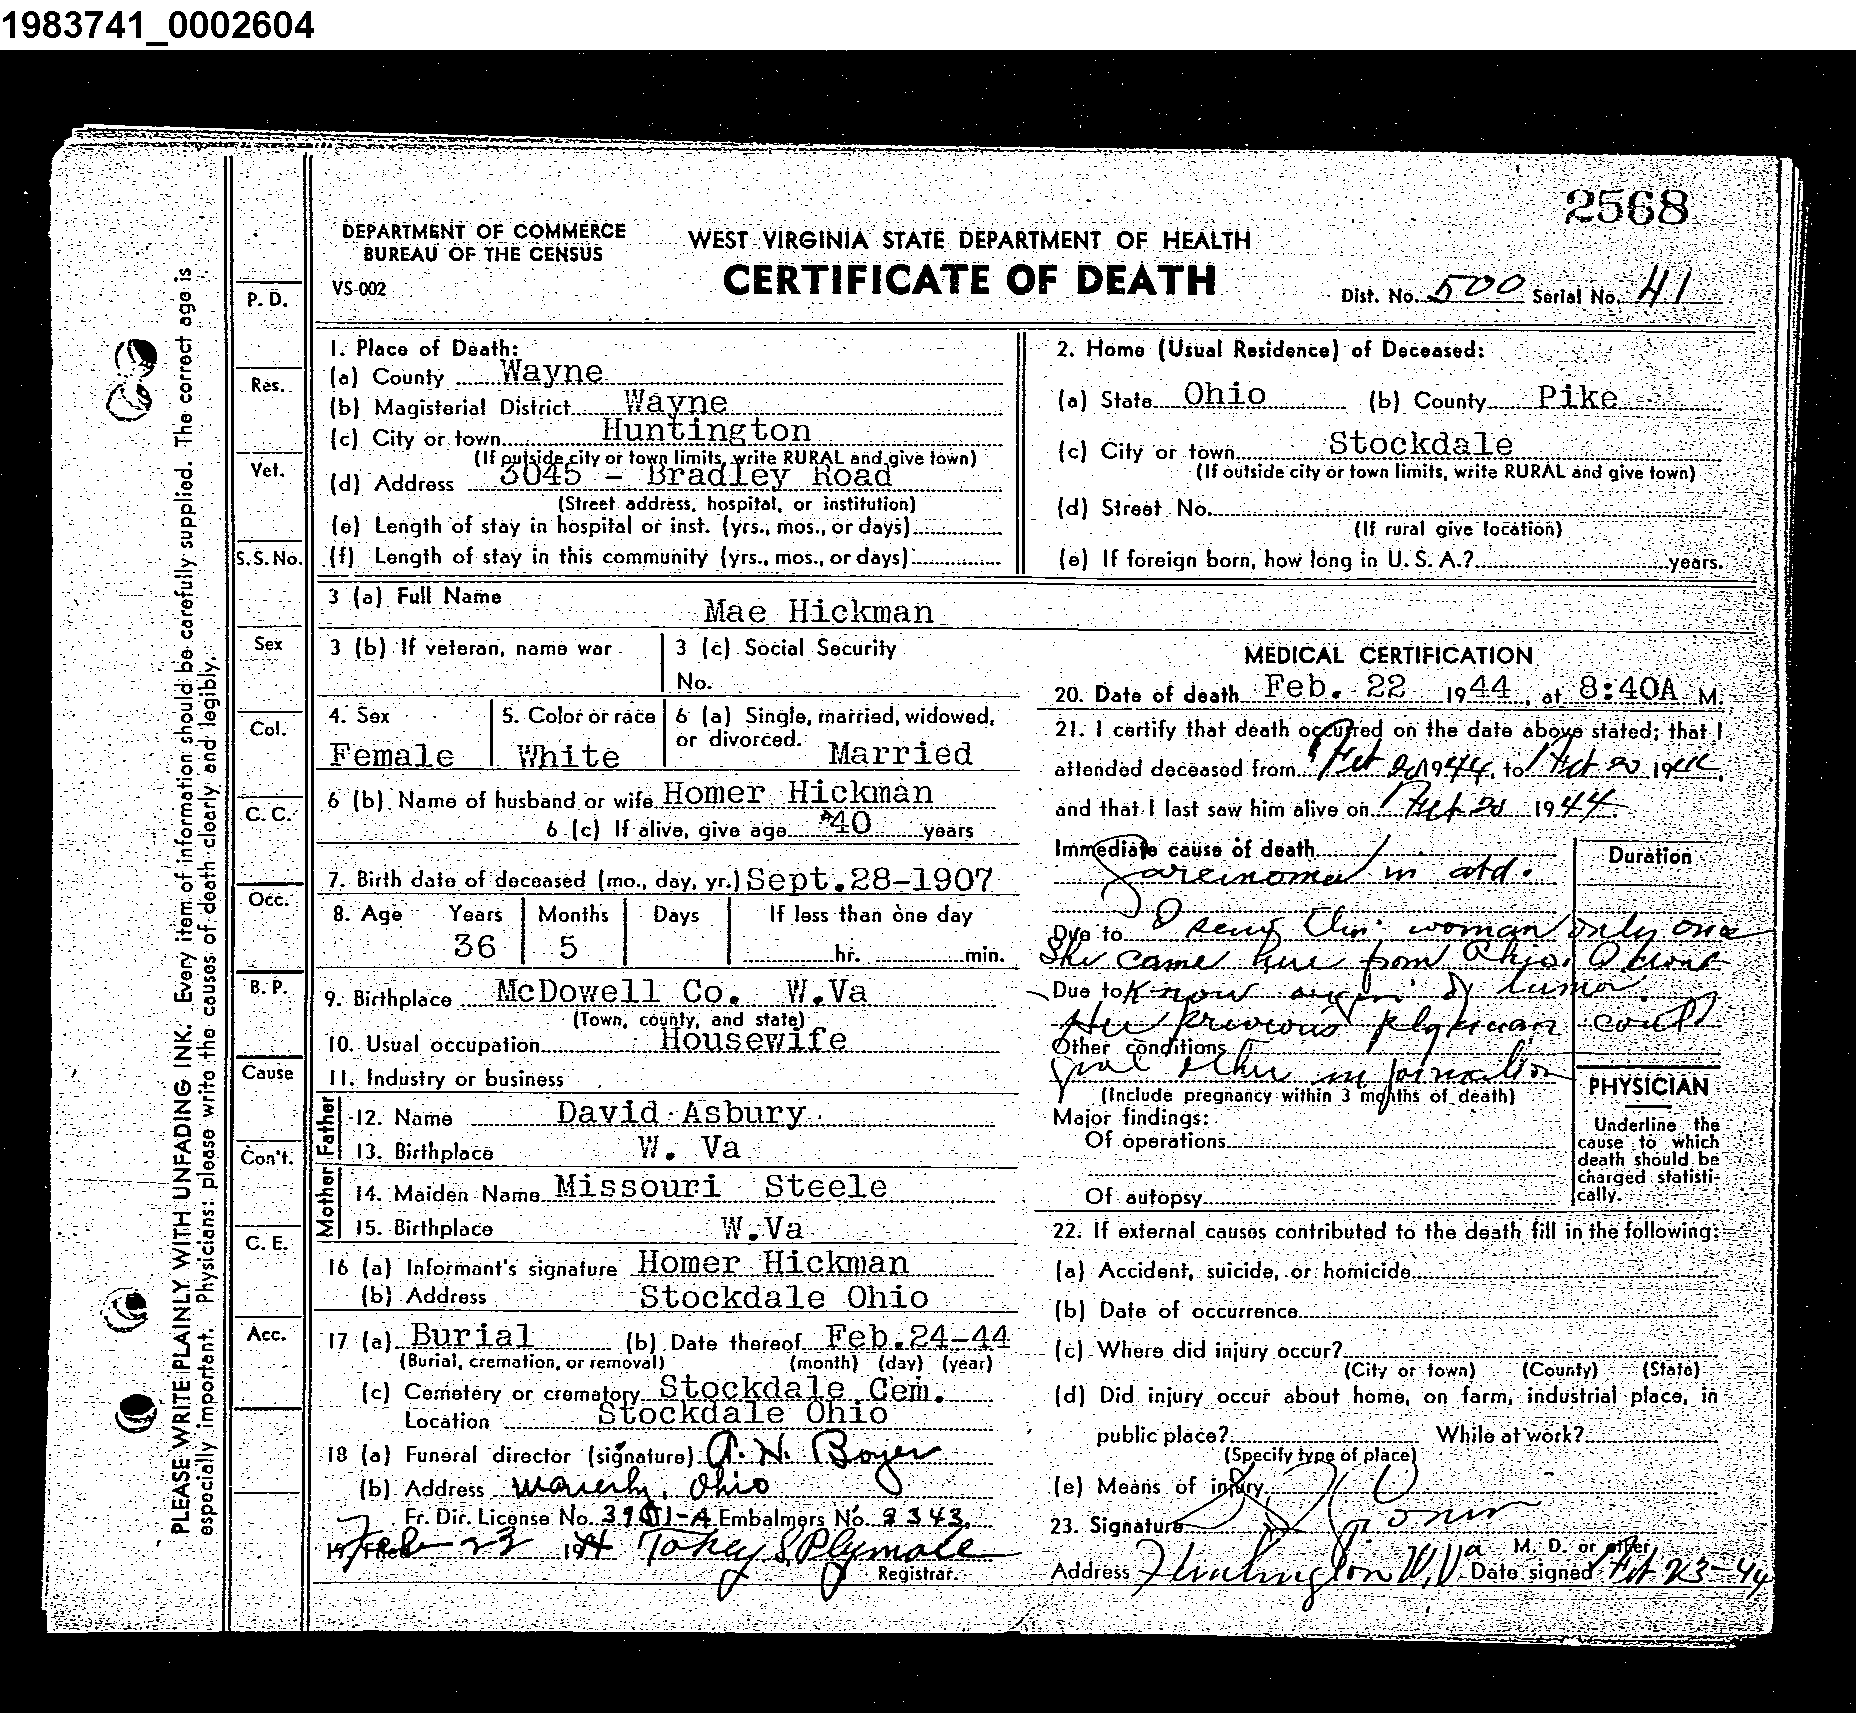 1983741_0002604
2568
DEPARTMENT OF COMMERCE
BUREAU OF THE CENSUS
VS-002
WEST VIRGINIA STATE DEPARTMENT OF HEALTH
CERTIFICATE OF DEATH
Dist. No. 500 Serial No. 41
PLEASE WRITE PLAINLY WITH UNFADING INK. Every item of information should be carefully supplied. The correct age is
especially important. Physicians: please write the causes of death clearly and legibly.
P. D.
Res.
Vet.
S. S. No.
Sex
Col.
C. C.
Occ.
B. P.
Cause
Con't.
C. E.
Acc.
1. Place of Death:
(a) County Wayne
(b) Magisterial District Wayne
(c) City or town Huntington
(If outside city or town limits, write RURAL and give town)
(d) Address 3045 - Bradley Road
(Street address, hospital, or institution)
(e) Length of stay in hospital or inst. (yrs., mos., or days)
(f) Length of stay in this community (yrs., mos., or days)
2. Home (Usual Residence) of Deceased:
(a) State Ohio (b) County Pike
(c) City or town Stockdale
(If outside city or town limits, write RURAL and give town)
(d) Street No.
(If rural give location)
(e) If foreign born, how long in U. S. A.? years.
3 (a) Full Name Mae Hickman
3 (b) If veteran, name war
3 (c) Social Security
No.
4. Sex Female
5. Color or race White
6 (a) Single, married, widowed,
or divorced. Married
6 (b) Name of husband or wife Homer Hickman
6 (c) If alive, give age 40 years
7. Birth date of deceased (mo., day, yr.) Sept.28-1907
8. Age Years Months Days If less than one day
36 5 hr. min.
9. Birthplace McDowell Co. W.Va
(Town, county, and state)
10. Usual occupation Housewife
11. Industry or business
Father
12. Name David Asbury
13. Birthplace W. Va
Mother
14. Maiden Name Missouri Steele
15. Birthplace W.Va
16 (a) Informant's signature Homer Hickman
(b) Address Stockdale Ohio
17 (a) Burial (b) Date thereof Feb.24-44
(Burial, cremation, or removal) (month) (day) (year)
(c) Cemetery or crematory Stockdale Cem.
Location Stockdale Ohio
18 (a) Funeral director (signature) A. N. Boyer
(b) Address Waverly, Ohio
Fr. Dir. License No. Embalmers No. 2343
Feb 23 1944 Tokey S Plymale
Registrar.
MEDICAL CERTIFICATION
20. Date of death Feb. 22 1944, at 8:40A M.
21. I certify that death occurred on the date above stated; that I
attended deceased from Feb 20 1944, to Feb 20 1944,
and that I last saw him alive on Feb 20 1944.
Immediate cause of death
Duration
in abd.
Due to I seen this woman only once
She came here from Ohio. I dont
Due to know origin of tumor.
Her previous physician could
Other conditions
give other information
(Include pregnancy within 3 months of death)
Major findings:
Of operations
Of autopsy
PHYSICIAN
Underline the
cause to which
death should be
charged statisti-
cally.
22. If external causes contributed to the death fill in the following:
(a) Accident, suicide, or homicide
(b) Date of occurrence
(c) Where did injury occur?
(City or town) (County) (State)
(d) Did injury occur about home, on farm, industrial place, in
public place? While at work?
(Specify type of place)
(e) Means of injury
23. Signature
M. D. or other
Address Huntington W.Va Date signed Feb 23-44